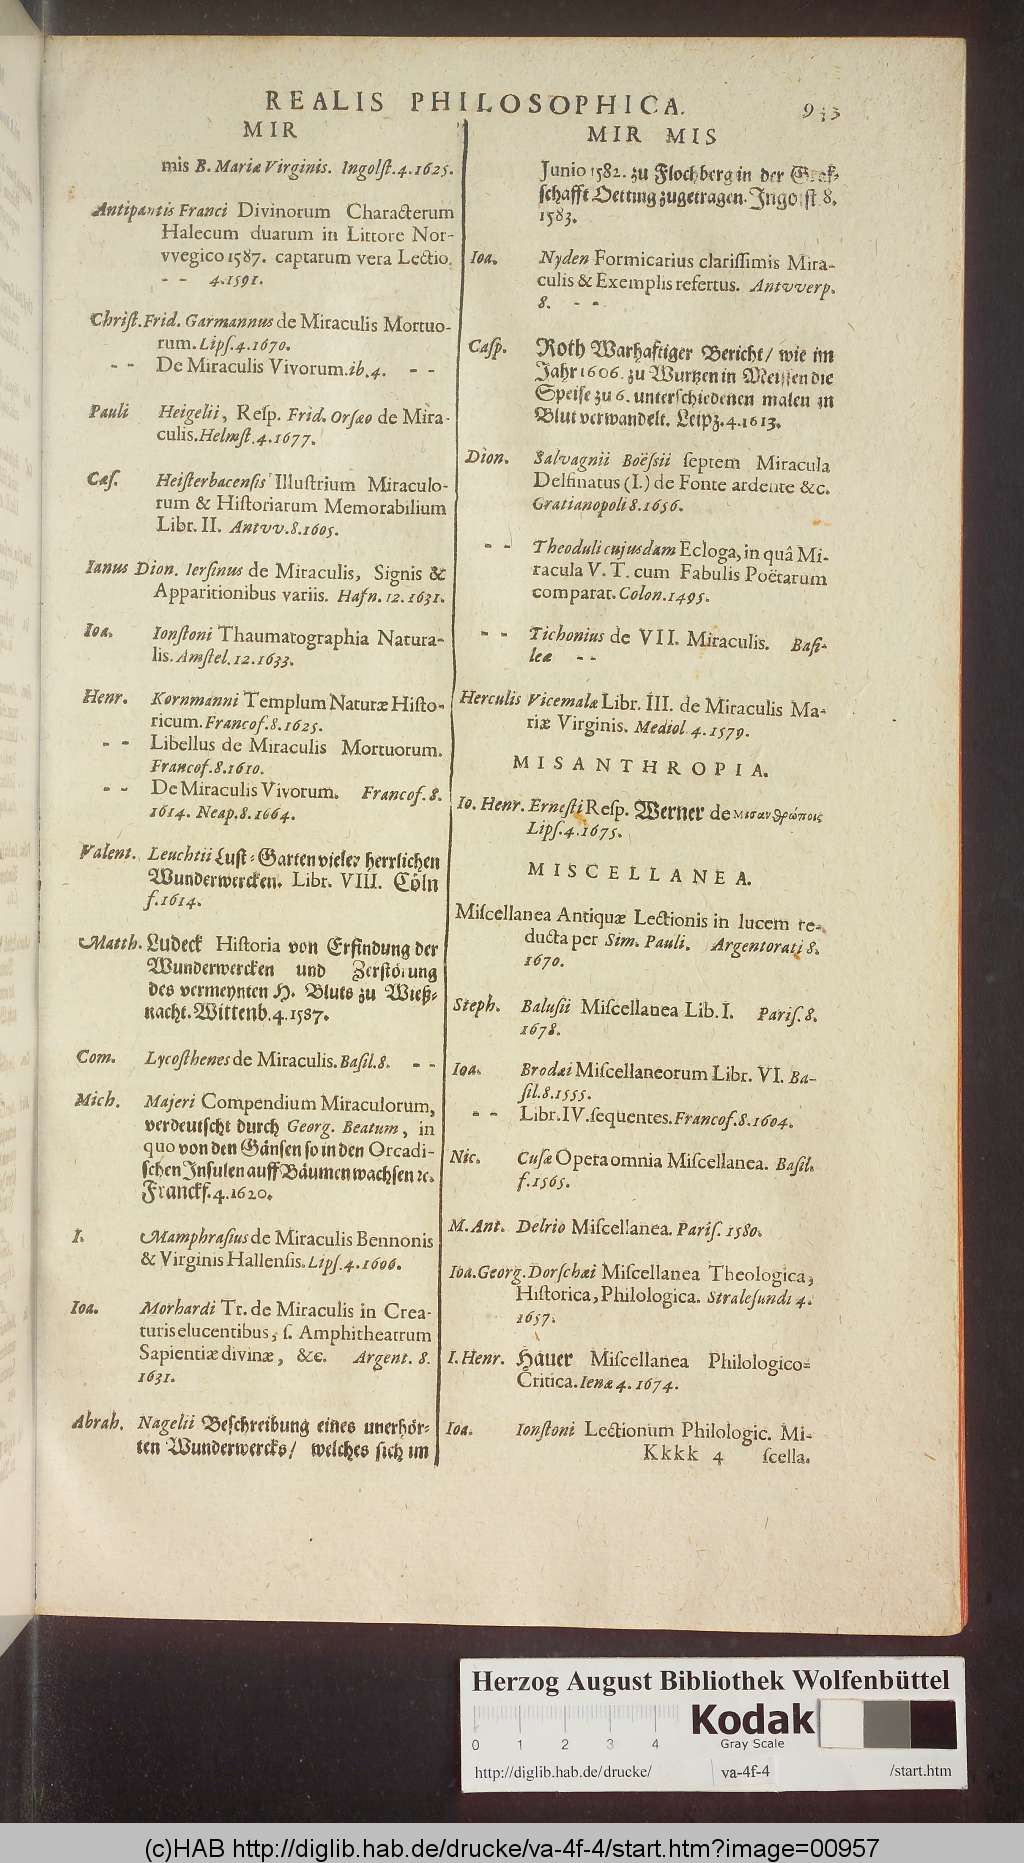 REALIS PHILOSOPHICA.
MIR
mis B. Mariæ Virginis. Ingolſt. 4. 1625.
Antipantis Franci Divinorum Characterum
Halecum duarum in Littore Nor-
vvegico 1587. captarum vera Lectio.
- - 4. 1591.
Chriſt. Frid. Garmannus de Miraculis Mortuo-
rum. Lipſ. 4. 1670.
- - De Miraculis Vivorum. ib. 4. - -
Pauli Heigelii, Reſp. Frid. Orſæo de Mira-
culis. Helmſt. 4. 1677.
Cæſ. Heiſterbacenſis Illuſtrium Miraculo-
rum & Hiſtoriarum Memorabilium
Libr. II. Antvv. 8. 1605.
Ianus Dion. Ierſinus de Miraculis, Signis &
Apparitionibus variis. Hafn. 12. 1631.
Ioa. Ionſtoni Thaumatographia Natura-
lis. Amſtel. 12. 1633.
Henr. Kornmanni Templum Naturæ Hiſto-
ricum. Francof. 8. 1625.
- - Libellus de Miraculis Mortuorum.
Francof. 8. 1610.
- - De Miraculis Vivorum. Francof. 8.
1614. Neap. 8. 1664.
Valent. Leuchtii Luſt-Garten vieler herrlichen
Wunderwercken. Libr. VIII. Cöln
f. 1614.
Matth. Ludeck Hiſtoria von Erfindung der
Wunderwercken und Zerſtörung
des vermeynten H. Bluts zu Wieß-
nacht. Wittenb. 4. 1587.
Com. Lycoſthenes de Miraculis. Baſil. 8. - -
Mich. Majeri Compendium Miraculorum,
verdeutſcht durch Georg. Beatum, in
quo von den Gänſen ſo in den Orcadi-
ſchen Inſulen auff Bäumen wachſen ꝛc.
Franckf. 4. 1620.
I. Mamphraſius de Miraculis Bennonis
& Virginis Hallenſis. Lipſ. 4. 1606.
Ioa. Morhardi Tr. de Miraculis in Crea-
turis elucentibus, ſ. Amphitheatrum
Sapientiæ divinæ, &c. Argent. 8.
1631.
Abrah. Nagelii Beſchreibung eines unerhör-
ten Wunderwercks / welches ſich im
MIR MIS
Junio 1582. zu Flochberg in der Graf-
ſchafft Oetting zugetragen. Ingolſt. 8.
1583.
Ioa. Nyden Formicarius clariſſimis Mira-
culis & Exemplis refertus. Antvverp.
8. - -
Caſp. Roth Warhaftiger Bericht / wie im
Jahr 1606. zu Wurtzen in Meiſſen die
Speiſe zu 6. unterſchiedenen malen in
Blut verwandelt. Leipz. 4. 1613.
Dion. Salvagnii Boëſſii ſeptem Miracula
Delfinatus (I.) de Fonte ardente &c.
Gratianopoli 8. 1656.
- - Theoduli cujusdam Ecloga, in quâ Mi-
racula V. T. cum Fabulis Poëtarum
comparat. Colon. 1495.
- - Tichonius de VII. Miraculis. Baſi-
leæ - -
Herculis Vicemalæ Libr. III. de Miraculis Ma-
riæ Virginis. Mediol. 4. 1579.
MISANTHROPIA.
Io. Henr. Erneſti Reſp. Werner de μισανθρώποις
Lipſ. 4. 1675.
MISCELLANEA.
Miſcellanea Antiquæ Lectionis in lucem re-
ducta per Sim. Pauli. Argentorati 8.
1670.
Steph. Baluſii Miſcellanea Lib. I. Pariſ. 8.
1678.
Ioa. Brodæi Miſcellaneorum Libr. VI. Ba-
ſil. 8. 1555.
- - Libr. IV. ſequentes. Francof. 8. 1604.
Nic. Cuſæ Opera omnia Miſcellanea. Baſil.
f. 1565.
M. Ant. Delrio Miſcellanea. Pariſ. 1580.
Ioa. Georg. Dorſchæi Miſcellanea Theologica,
Hiſtorica, Philologica. Straleſundi 4.
1657.
I. Henr. Häuer Miſcellanea Philologico-
Critica. Ienæ 4. 1674.
Ioa. Ionſtoni Lectionum Philologic. Mi-
Kkkk 4 ſcella.
Herzog August Bibliothek Wolfenbüttel
0 1 2 3 4
Kodak
Gray Scale
http://diglib.hab.de/drucke/ va-4f-4 /start.htm
(c)HAB http://diglib.hab.de/drucke/va-4f-4/start.htm?image=00957